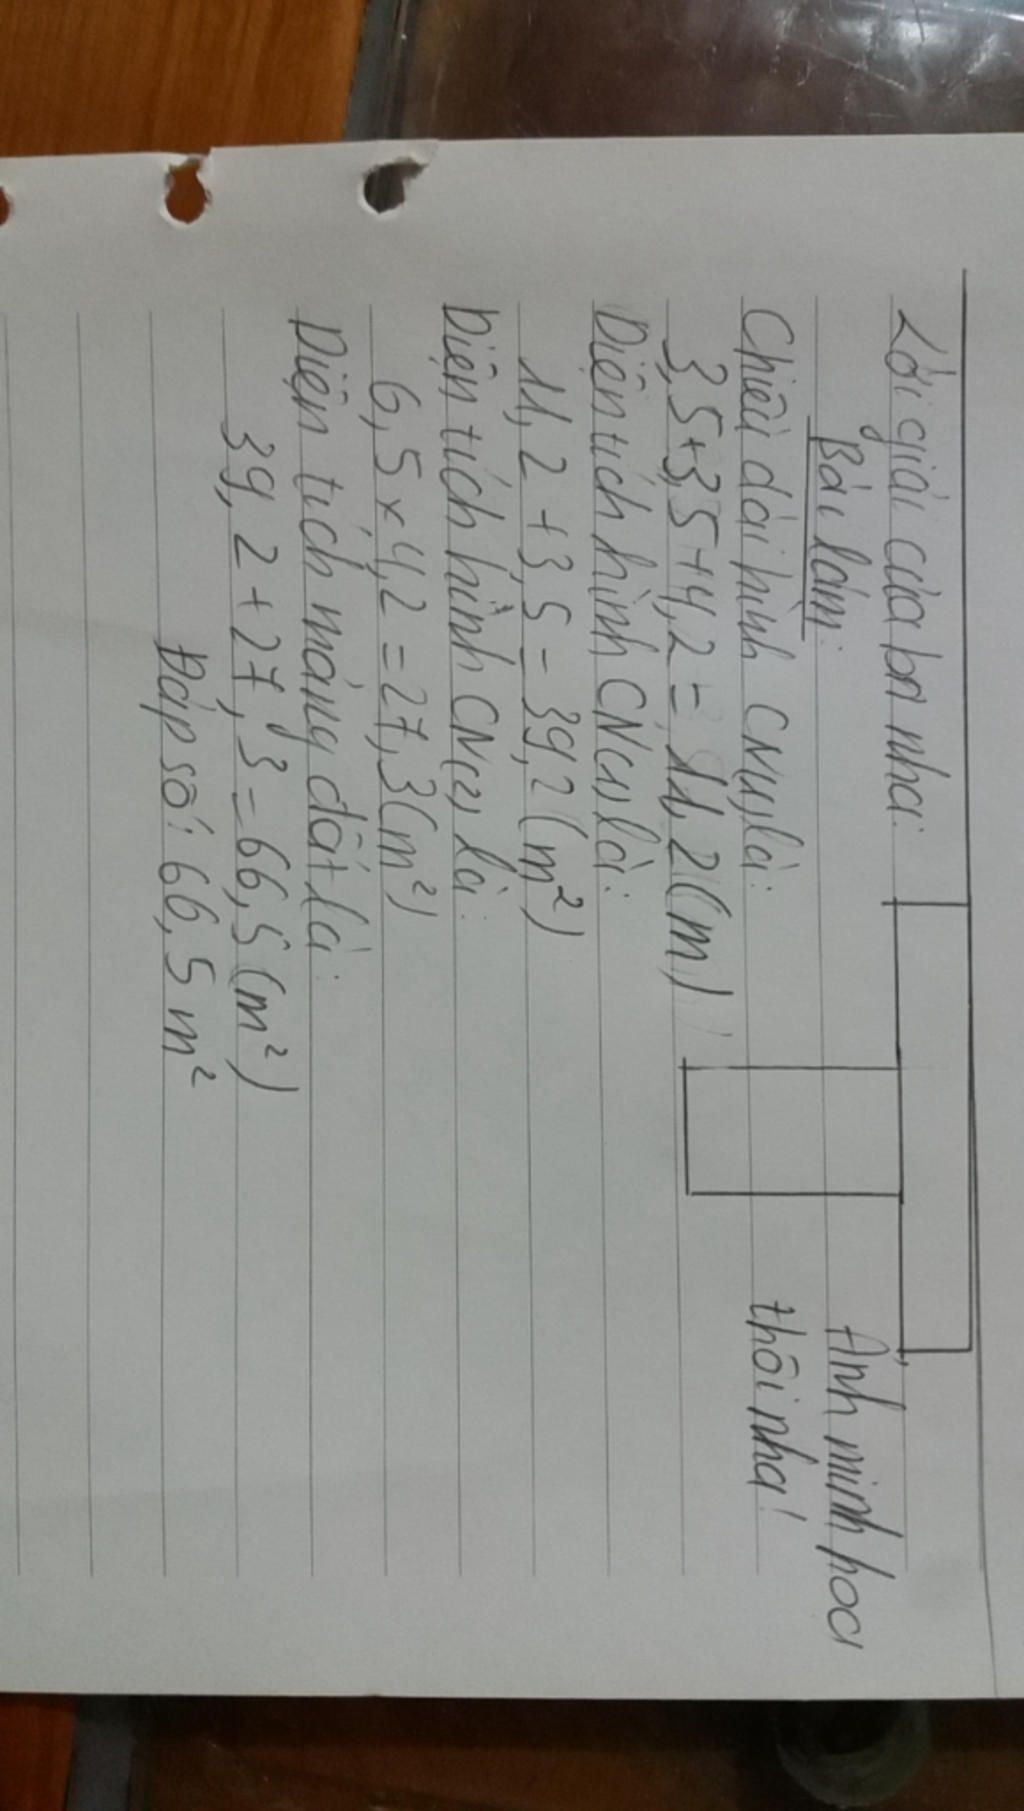 Lời giải của bn nha:
Bài làm:
Ảnh minh hoạ
thôi nha!
Chiều dài hình CN(1) là:
3,5+3,5+4,2 = 11,2 (m)
Diện tích hình CN(1) là:
11,2 + 3,5 = 39,2 (m²)
Diện tích hình CN(2) là:
6,5 × 4,2 = 27,3 (m²)
Diện tích mảng đất là:
39,2 + 27,3 = 66,5 (m²)
Đáp số: 66,5 m²